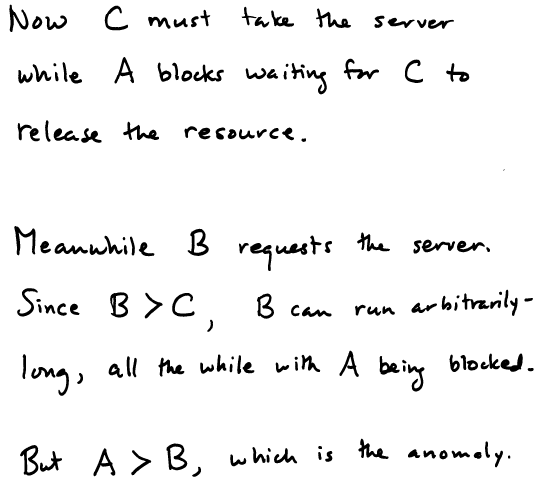 Now C must take the server
while A blocks waiting for C to
release the resource.
Meanwhile B requests the server.
Since B > C, B can run arbitrarily-
long, all the while with A being blocked.
But A > B, which is the anomaly.